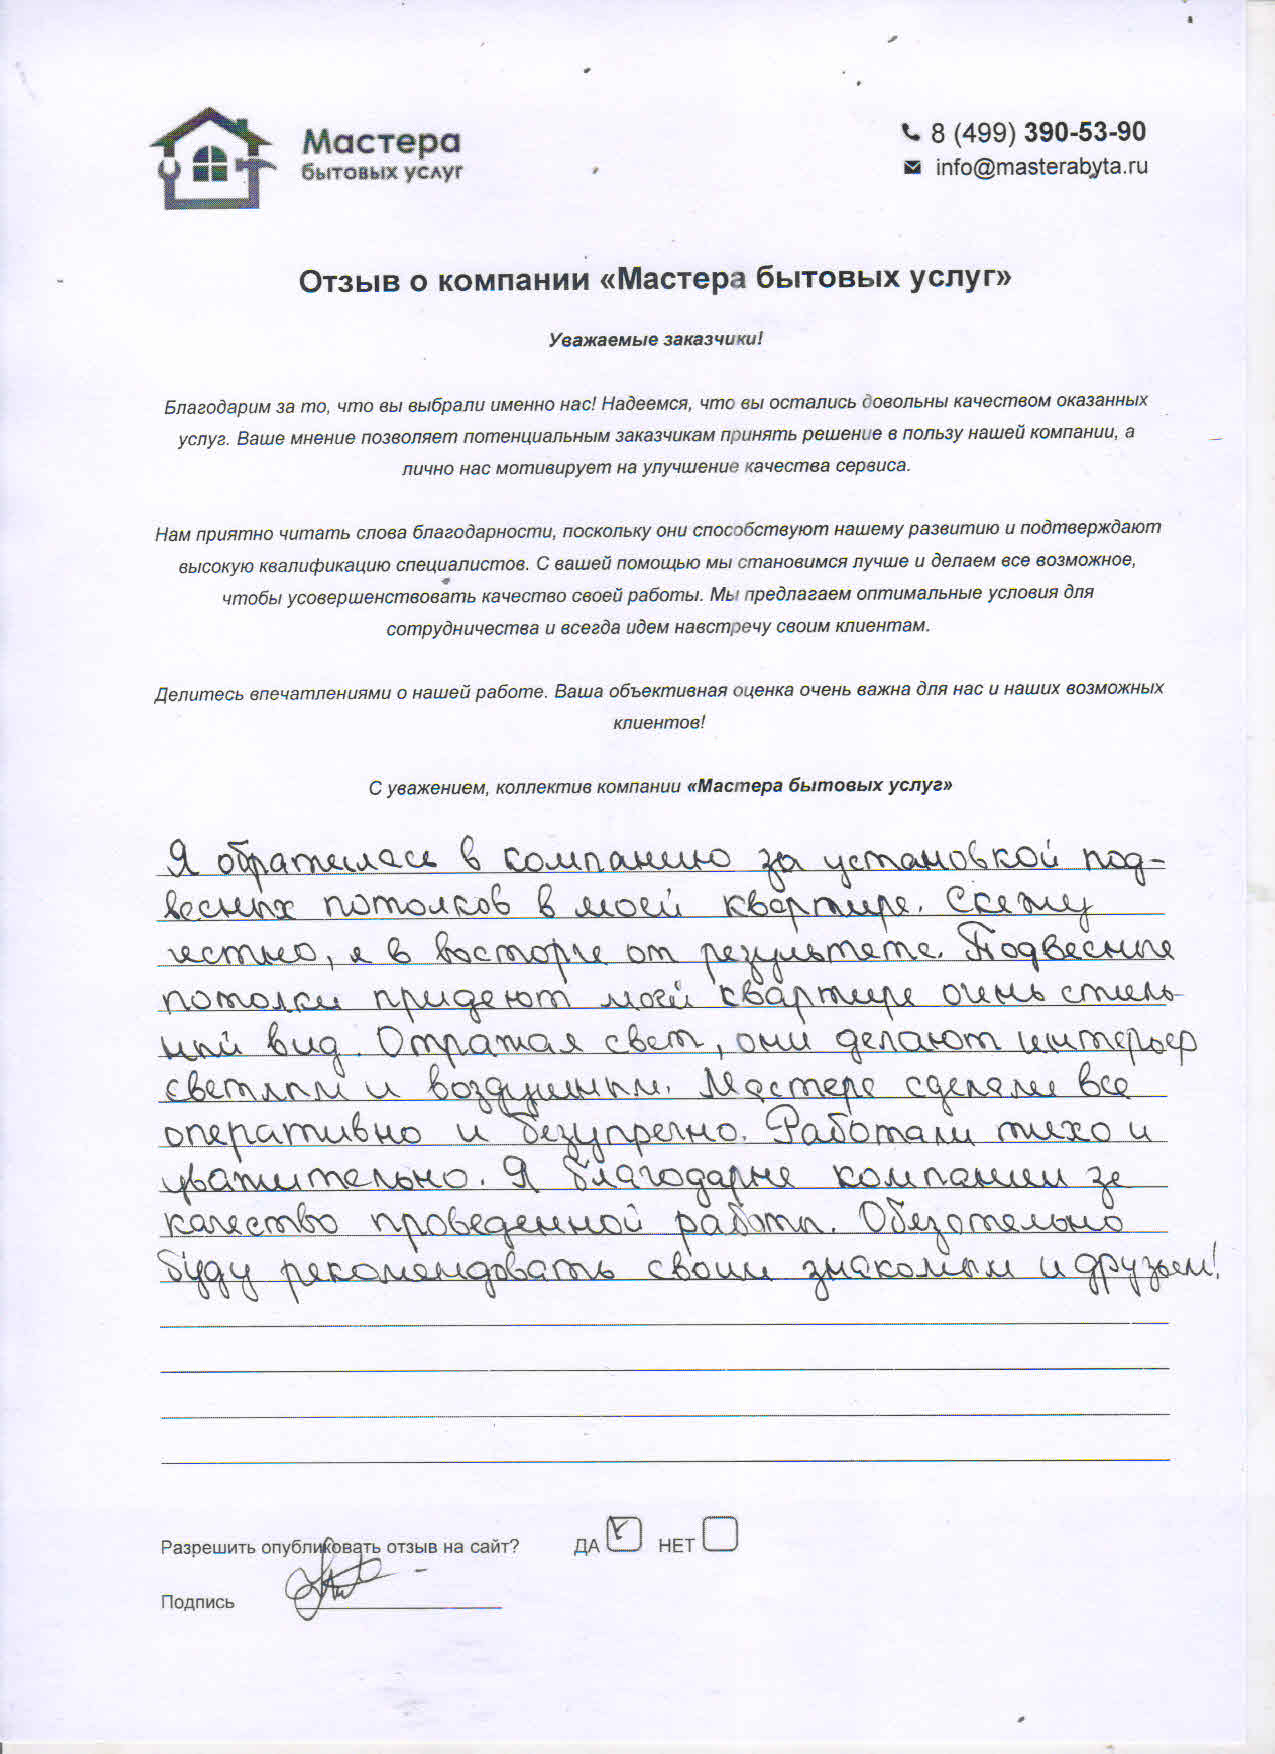 Мастера
бытовых услуг
8 (499) 390-53-90
info@masterabyta.ru
Отзыв о компании «Мастера бытовых услуг»
Уважаемые заказчики!
Благодарим за то, что вы выбрали именно нас! Надеемся, что вы остались довольны качеством оказанных
услуг. Ваше мнение позволяет потенциальным заказчикам принять решение в пользу нашей компании, а
лично нас мотивирует на улучшение качества сервиса.
Нам приятно читать слова благодарности, поскольку они способствуют нашему развитию и подтверждают
высокую квалификацию специалистов. С вашей помощью мы становимся лучше и делаем все возможное,
чтобы усовершенствовать качество своей работы. Мы предлагаем оптимальные условия для
сотрудничества и всегда идем навстречу своим клиентам.
Делитесь впечатлениями о нашей работе. Ваша объективная оценка очень важна для нас и наших возможных
клиентов!
С уважением, коллектив компании «Мастера бытовых услуг»
Я обратилась в компанию за установкой под-
весных потолков в моей квартире. Скажу
честно, я в восторге от результата. Подвесные
потолки придают моей квартире очень стиль-
ный вид. Отражая свет, они делают интерьер
светлым и воздушным. Мастера сделали все
оперативно и безупречно. Работали тихо и
уважительно. Я благодарна компании за
качество проведенной работы. Обязательно
буду рекомендовать своим знакомым и друзьям!
Разрешить опубликовать отзыв на сайт? ДА НЕТ
Подпись